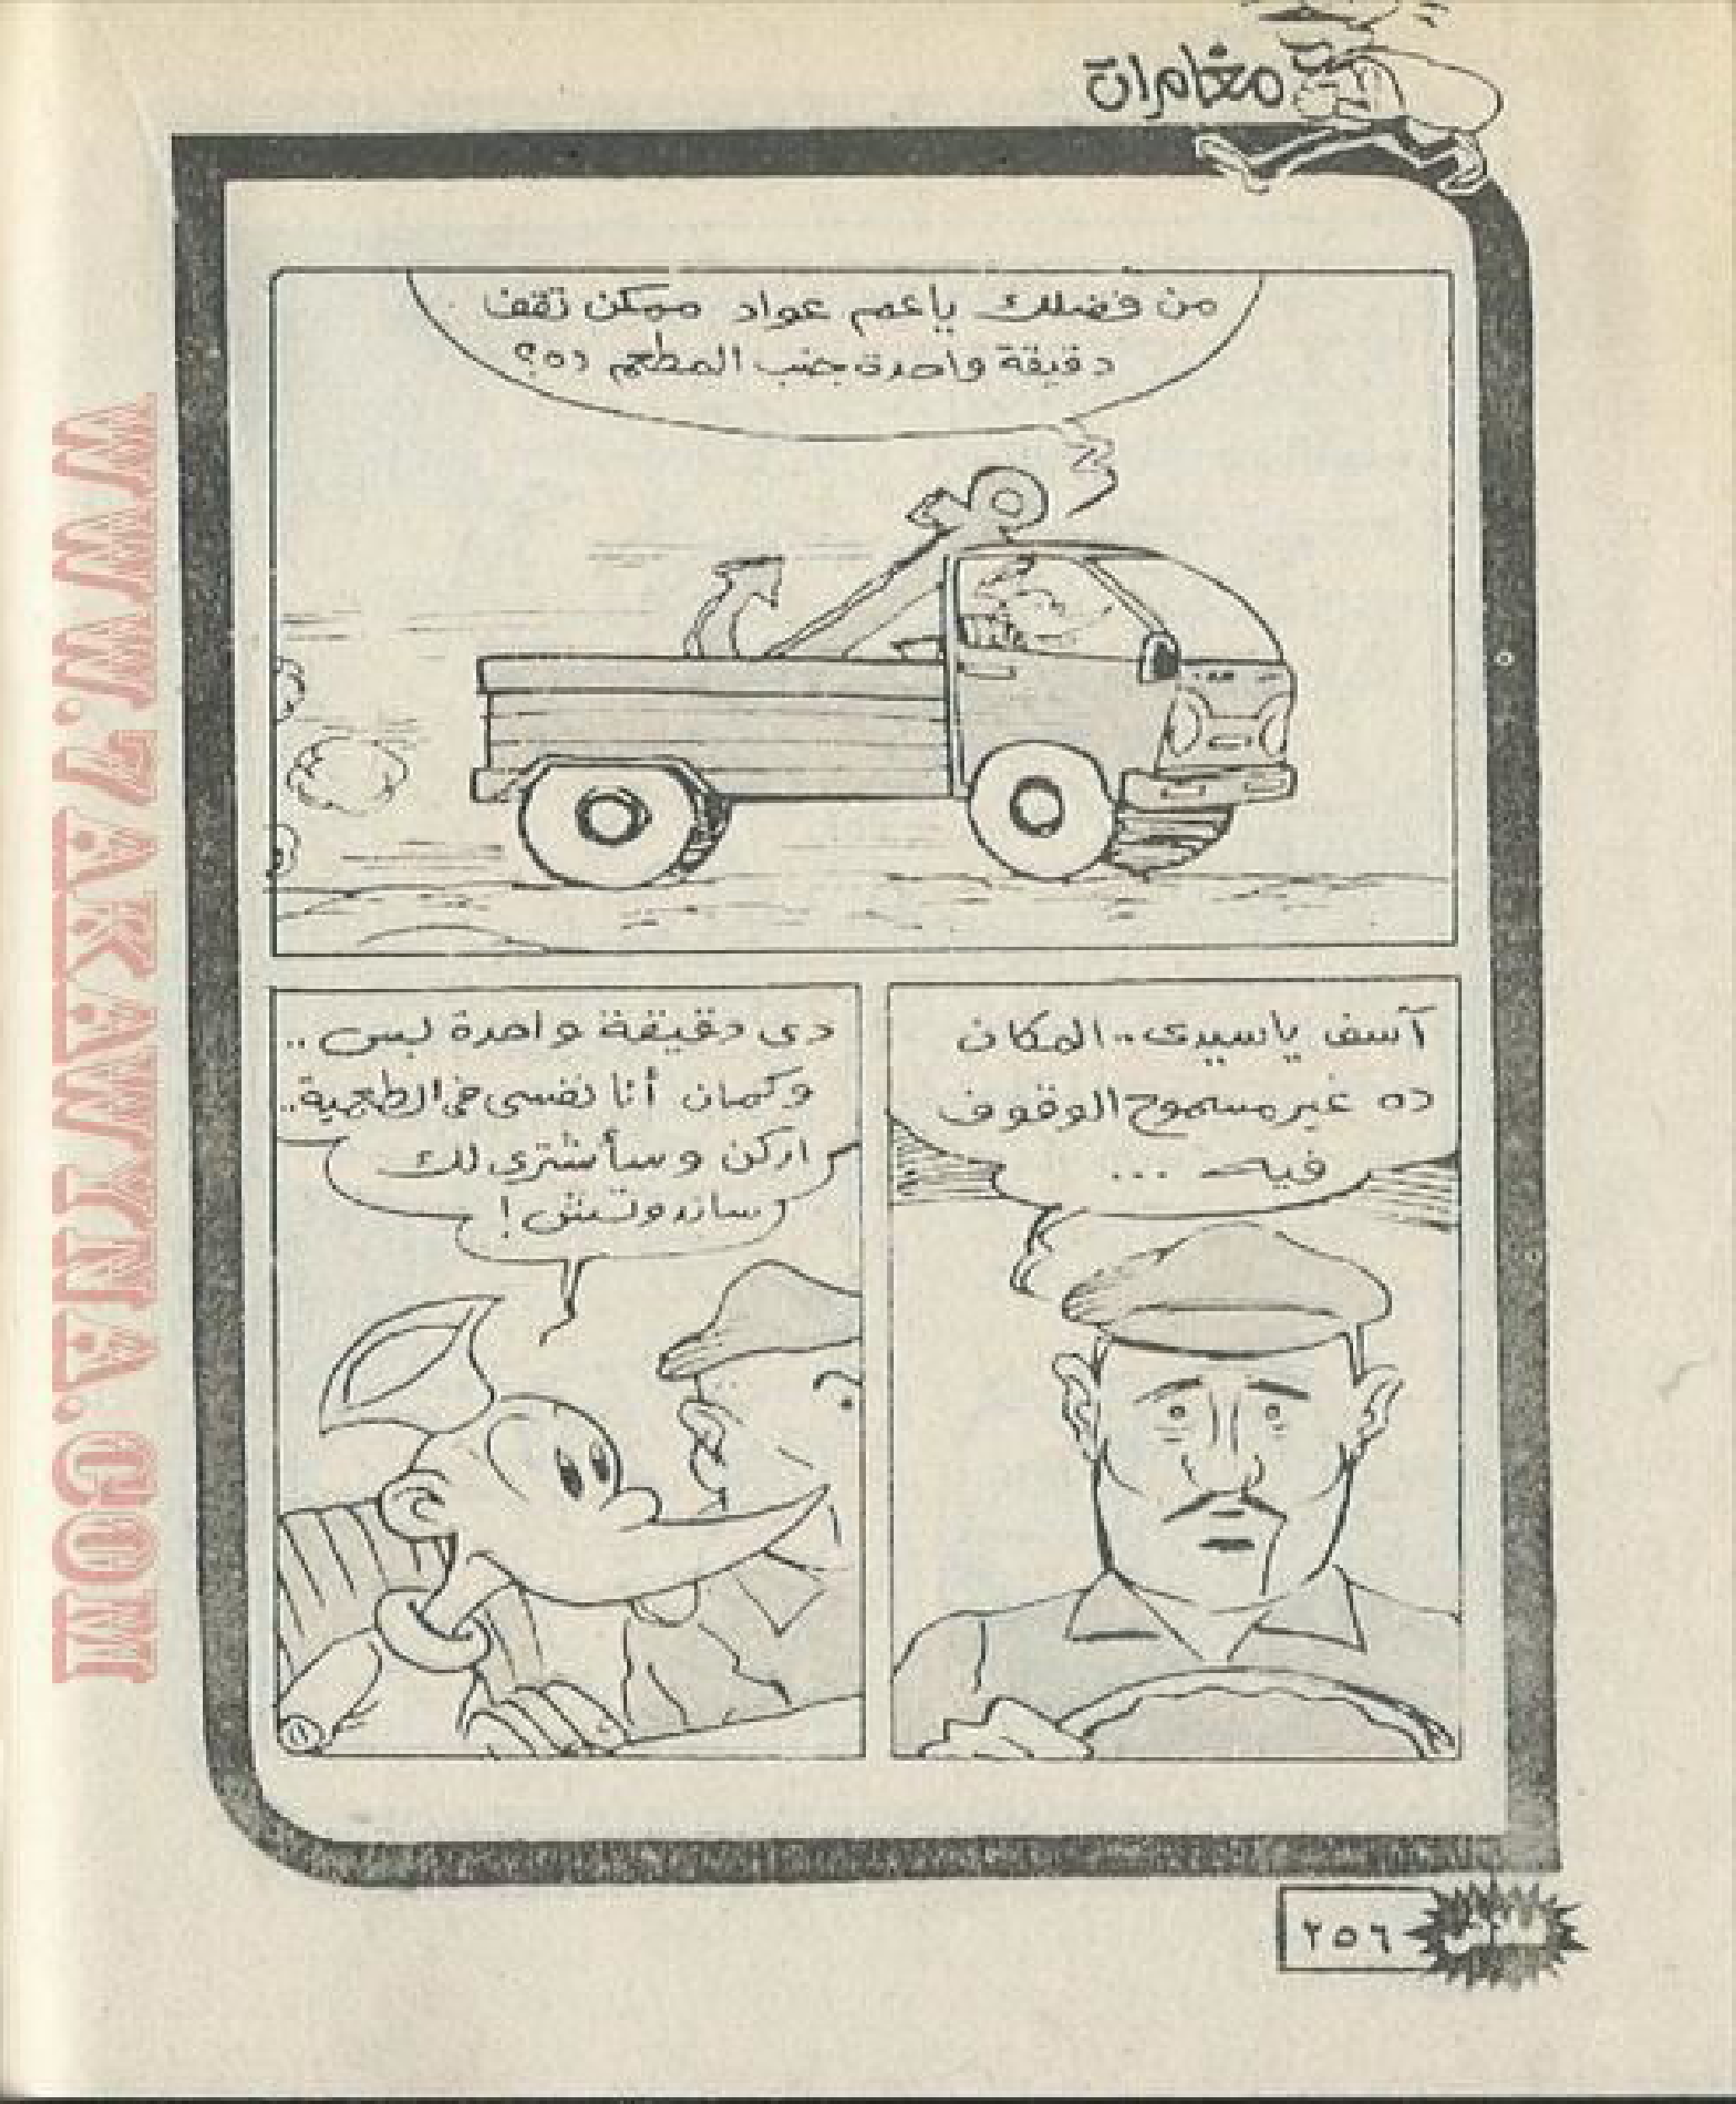 مغامرات
من فضلك ياعم عواد ممكن تقف
دقيقة واحدة جنب المطعم ده؟
آسف ياسيدى.. المكان
ده غير مسموح الوقوف
فيه ...
دى دقيقة واحدة بس ..
وكمان أنا نفسى فى الطعمية..
اركن وسأشترى لك
ساندوتش !
٢٥٦
WWW.7AKAWATNA.COM